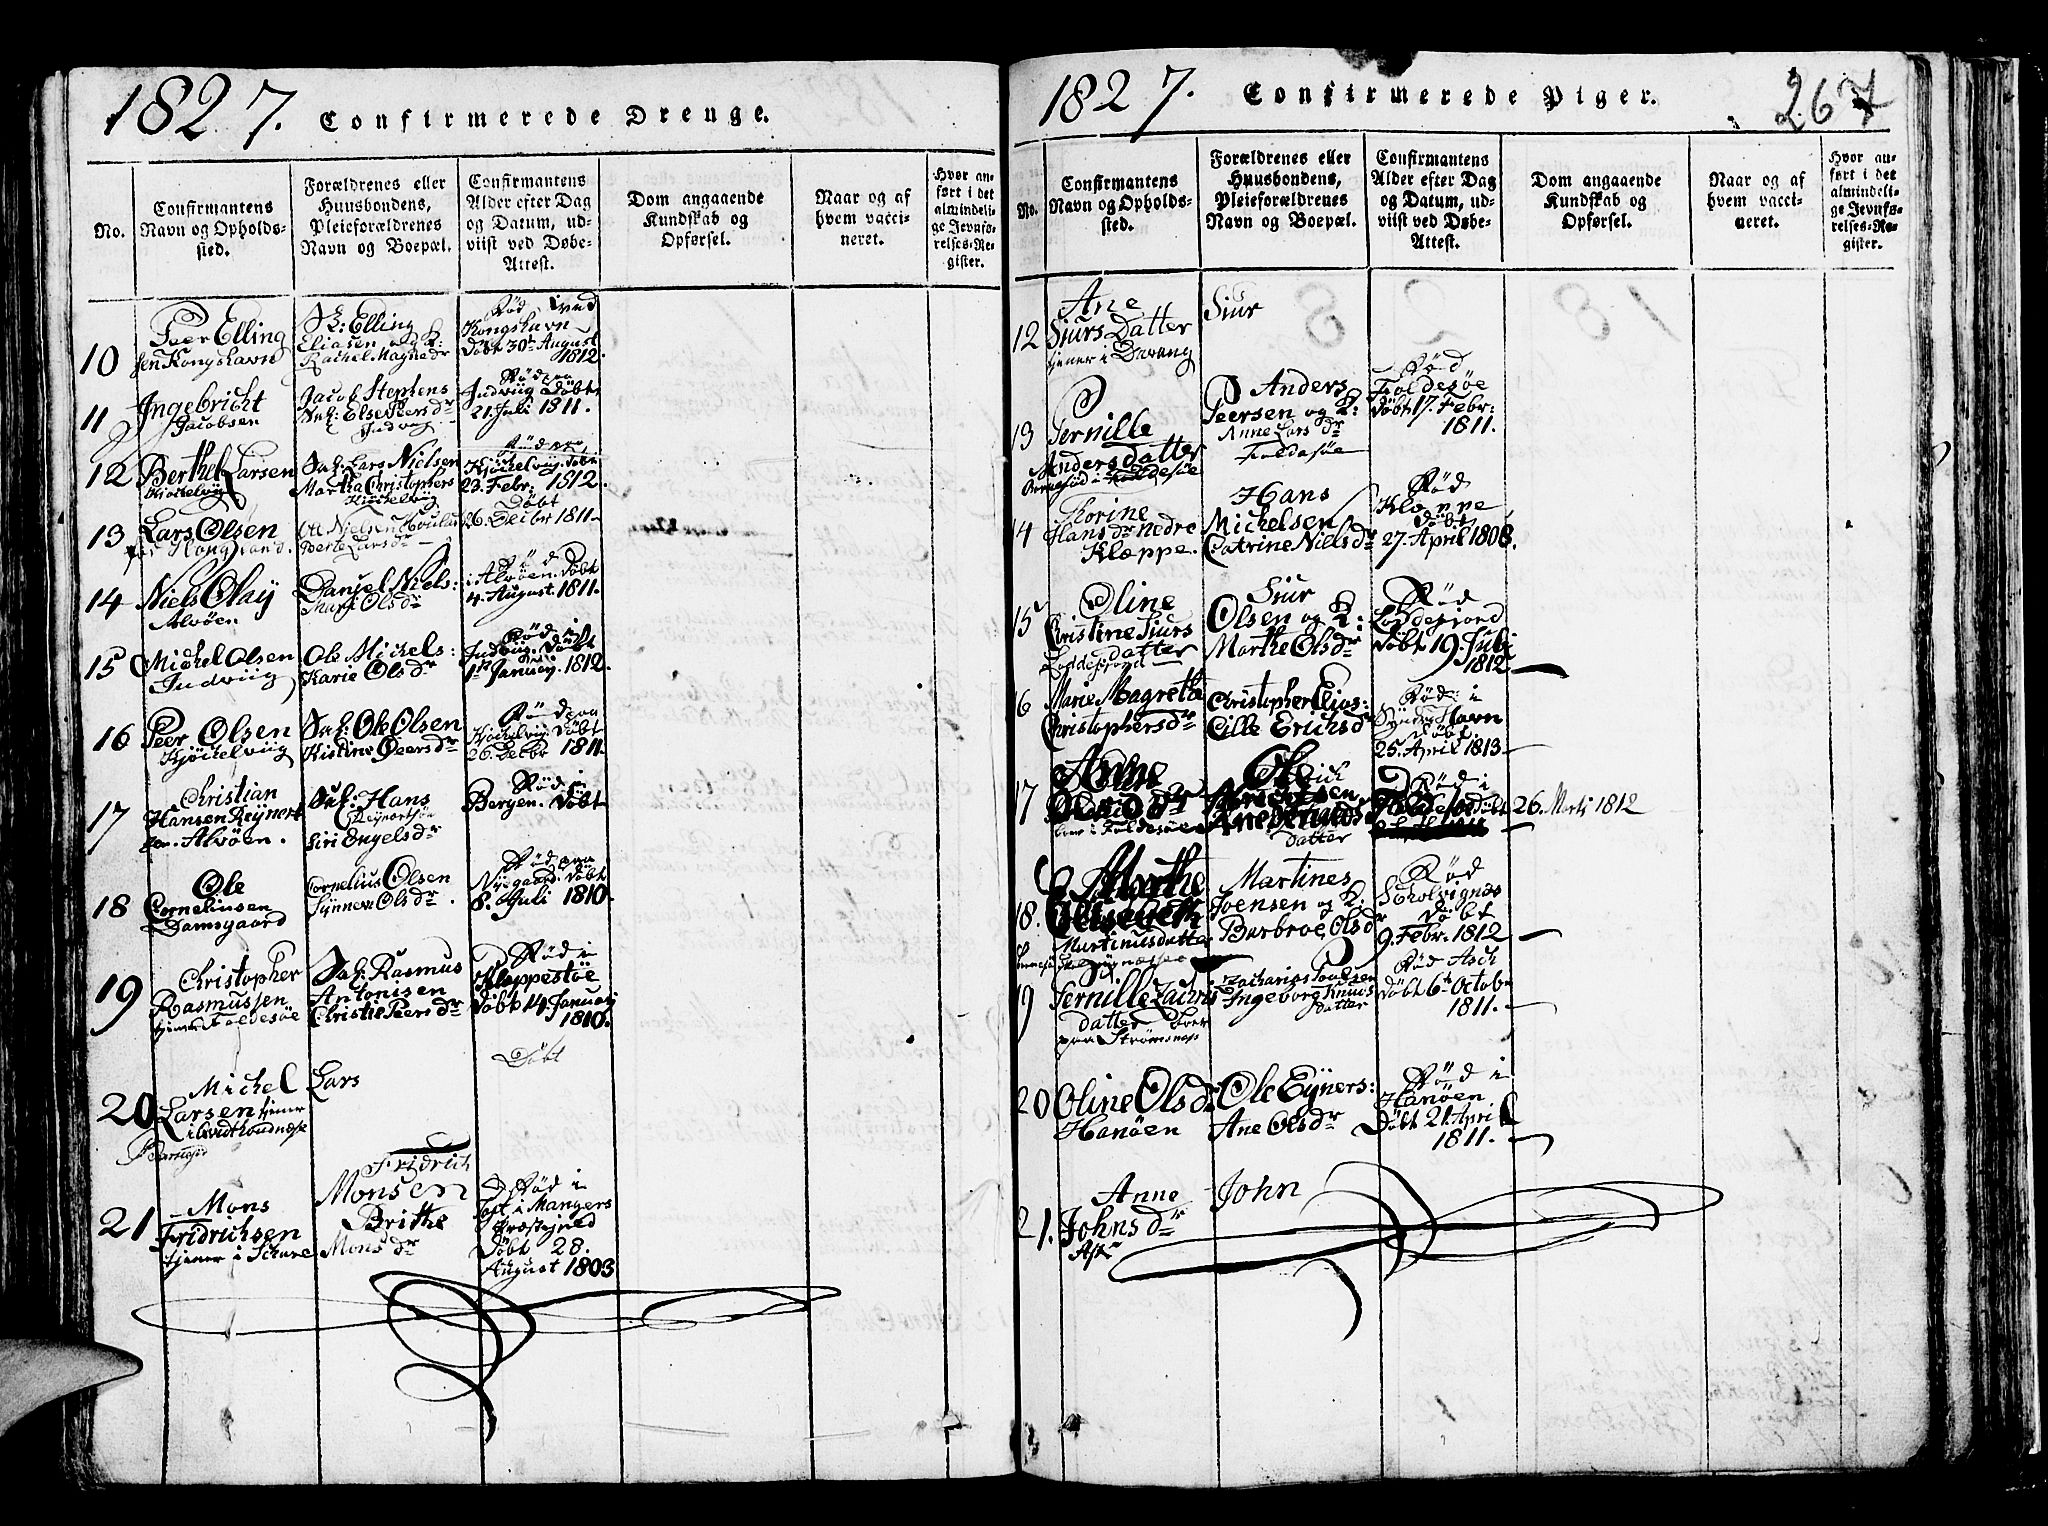 1827. Confirmerede Drenge.
No.
Confirmantens
Navn og Opholds-
sted.
Forældrenes eller
Huusbondens,
Pleieforældrenes
Navn og Boepæl.
Confirmantens
Alder efter Dag
og Datum, ud-
viist ved Døbe-
Attest.
Dom angaaende
Kundskab og
Opførsel.
Naar og af
hvem vacci-
neret.
Hvor an-
ført i det
almindeli-
ge Jevnfø-
relses-Re-
gister.
10
Peer Elling
sen Kongshavn
Elling
Eliasen
Rachel Magnedr
Fød ved
Kongshavn
Døbt 30t August
1812.
11
Ingebricht
Jacobsen
Jacob Stephens
Else Peersdr
Indviig
Fød paa
Indviig Døbt
21. Juli 1811.
12
Berthel Larsen
Kjøckelviig
Lars Nielsen
Martha Christophers
Kjøckelviig
Fød paa
Kjøckelviig. Døbt
23. Febr: 1812.
13
Lars Olsen
Ole Nielsen
Berte Larsdr
Døbt
26. Decbr 1811
14
Niels Olaij
Alvøen
Daniel Niels:
Mari Olsdr
Fød
i Alvøen. Døbt
4. August 1811.
15
Michel Olsen
Indviig
Ole Michels:
Karie Olsdr
Fød i
Indviig. Døbt
1st Januarij. 1812.
16
Peer Olsen
Kjøckelviig
Ole Olsen
Kistine Peersdr
Fød paa
Kjøckelviig Døbt
26. Decbr 1811
17
Christian
Hansen Reijnert
sen. Alvøen.
Hans
Reijnertsøn
Siri Engelsdr
Fød i
Bergen. Døbt
18
Ole
Cornelius en
Damsgaard
Cornelius Olsen
Sÿnneve Olsdr.
Fød paa
Nijegaard. Døbt
8. Juli 1810.
19
Christopher
Rasmussen
tjener Foldesøe
Rasmus
Antonisen
Christie Peersdr
Fød i
Kloppestøe
Døbt 14. Januarij
1810.
20
Michel
Larsen tjener
Lars
Døbt
21
Mons
Fridrichsen
tjener i
Fridrich
Monsen
Brithe
Monsdr
Fød i
i Mangers
Præstejeld
Døbt 28.
August 1803
1827. Confirmerede Piger.
267
No.
Confirmantens
Navn og Opholds-
sted.
Forældrenes eller
Huusbondens,
Pleieforældrenes
Navn og Boepæl.
Confirmantens
Alder efter Dag
og Datum, ud-
viist ved Døbe-
Attest.
Dom angaaende
Kundskab og
Opførsel.
Naar og af
hvem vacci-
neret.
Hvor an-
ført i det
almindeli-
ge Jevnfø-
relses-Re-
gister.
12
Ane
Siurs Datter
tjener i
Siur
13
Pernille
Anders datter
Anders
Peersen og K:
Anne Larsdr
Foldesøe
Fød
Foldesøe
Døbt 17. Febr:
1811.
14
Thorine
Hansdr nedre
Klæppe.
Hans
Michelsen
Catrine Nielsdr
Fød
Klæppe
Døbt
27. April 1808.
15
Oline
Christine Siurs
datter
Loddefjord
Siur
Olsen og K:
Marthe Olsdr
Fød
Loddefjord
Døbt 19. Juli
1812
16
Marie Magrethe
Christophersdr
Christopher Elias:
Cille Erichsdr
Fød i
Havn
Døbt
25. April 1813
17
Anne
Foldesøe
Ole
datter
Fød i
26. Marti 1812
18.
Marthe
Martinusdatter
Martines
Joensen og K:
Barbroe Olsd
Fød
Døbt
9. Febr. 1812
19
Pernille Zachris
datter
paa Strømsnæs
Zacharias Poulsen
Ingeborg Knuds
datter
Fød Asch
Døbt 6t Octobr
1811.
20
Oline Olsdr
Hanøen
Ole Eijners:
Ane Olsdr
Fød i
Hanøen
Døbt 21. April
1811.
21.
Anne
Johnsdr
Ask
John